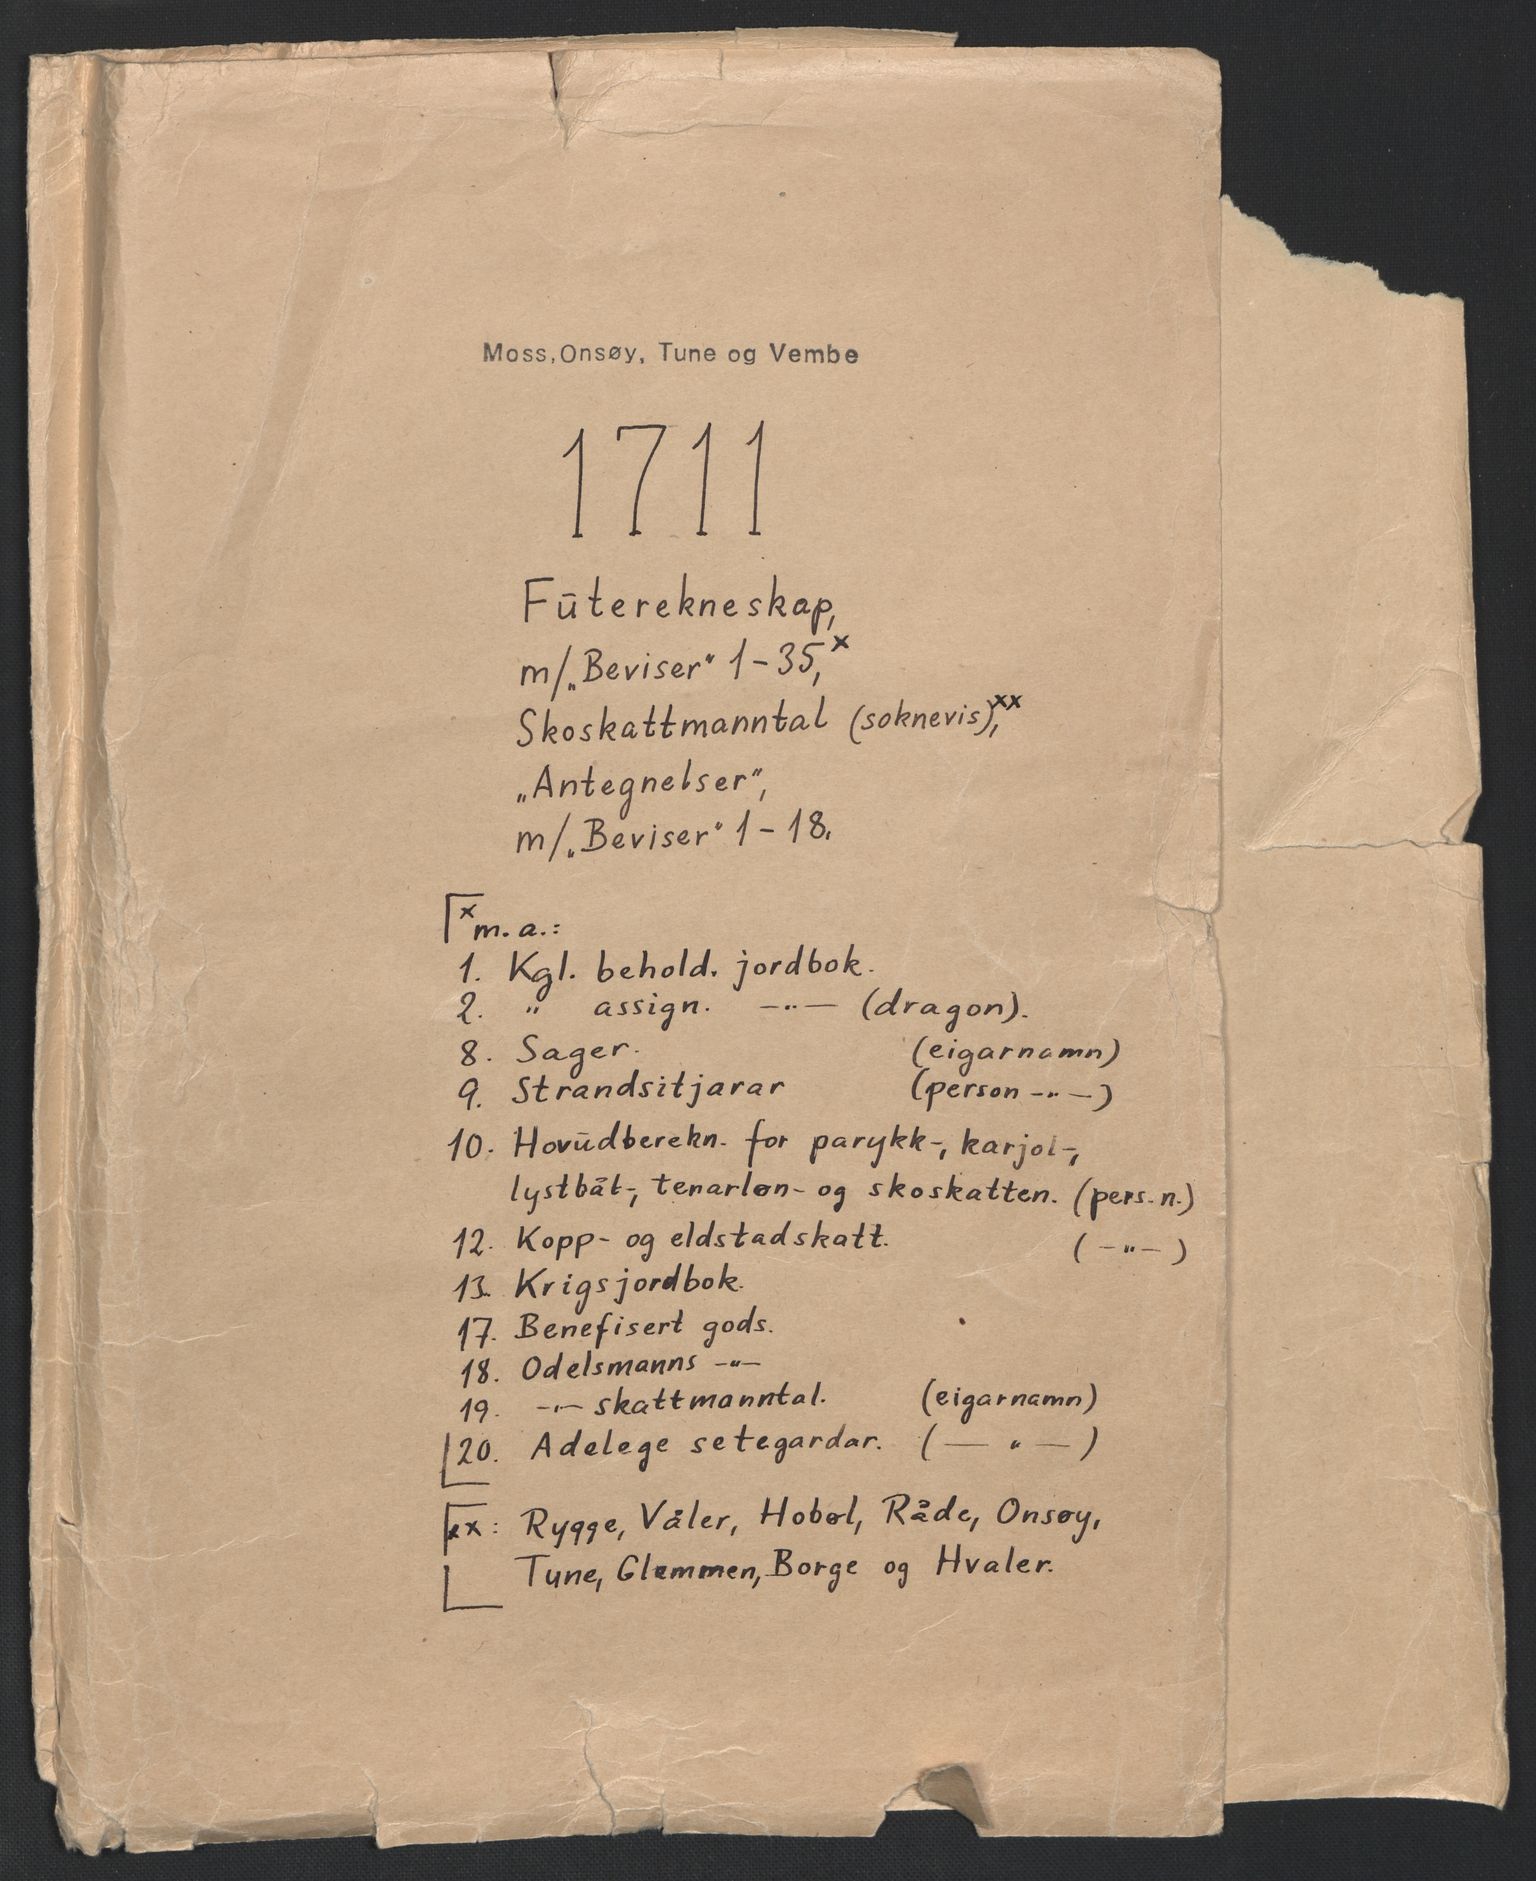 Moss, Onsøy, Tune og Vembe
1711
Fūterekneskap,
m/„Beviser“ 1-35,x
Skoskattmanntal (soknevis),xx
„Antegnelser“,
m/„Beviser“ 1-18.
x m. a.:
1. Kgl. behold. jordbok.
2. " assign. —"— (dragon).
8. Sager. (eigarnamn)
9. Strandsitjarar (person —"—)
10. Hovūdberekn. for parykk-, karjol-,
lystbåt-, tenarløn- og skoskatten. (pers.n.)
12. Kopp- og eldstadskatt. (—"—)
13. Krigsjordbok.
17. Benefisert gods.
18. Odelsmanns —"—
19. —"— skattmanntal. (eigarnamn)
20. Adelege setegardar. (— " —)
xx: Rygge, Våler, Hobøl, Råde, Onsøy,
Tune, Glemmen, Borge og Hvaler.